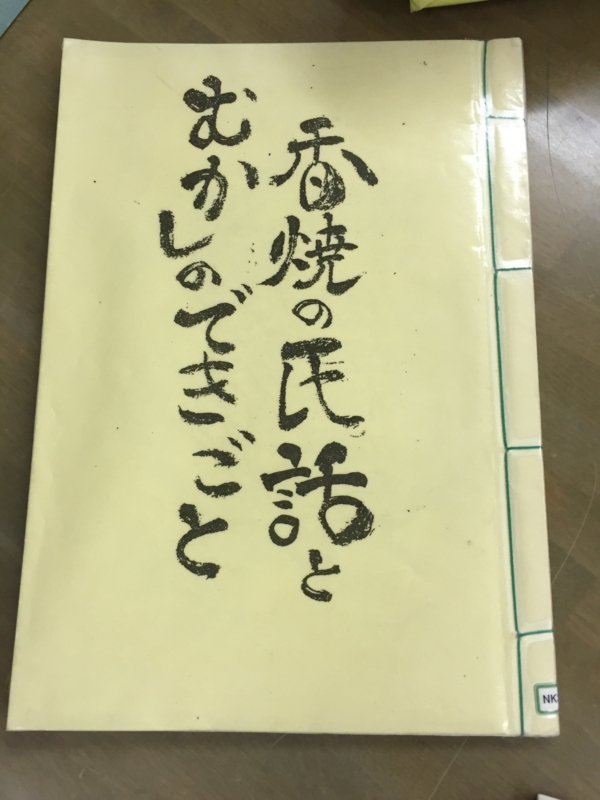 香焼の民話と
むかしのできごと
NK